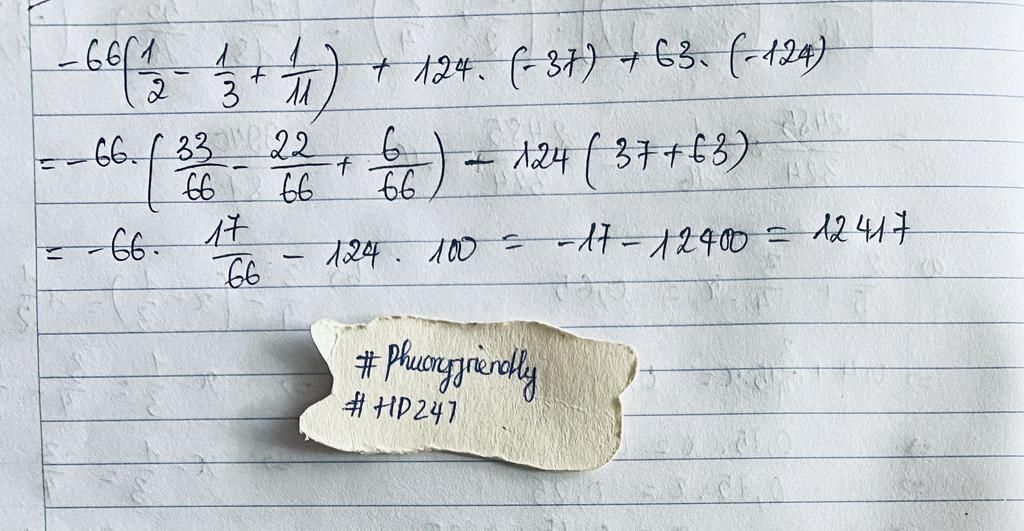 -66(1/2 - 1/3 + 1/11) + 124. (-37) + 63. (-124)
= -66. (33/66 - 22/66 + 6/66) - 124 (37+63)
= -66. 17/66 - 124 . 100 = -17 - 12400 = 12417
# Phuongfriendly
# HD247